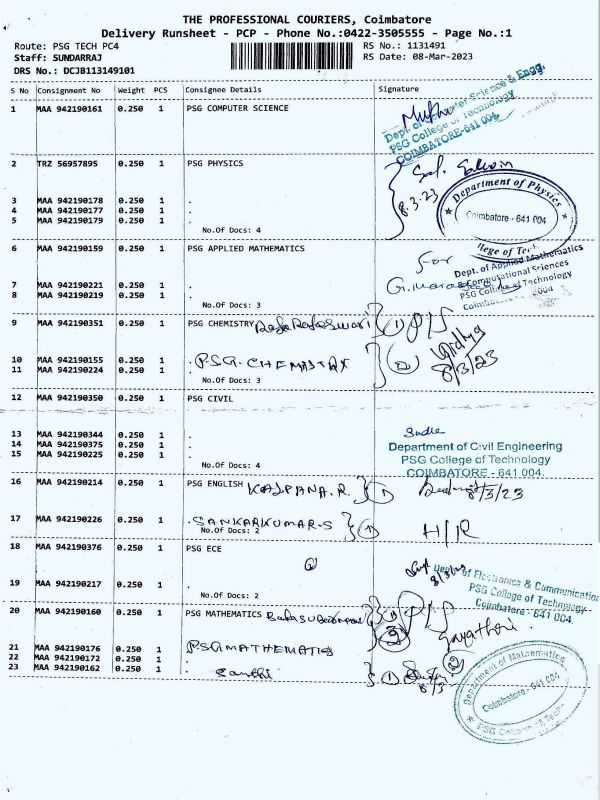 THE PROFESSIONAL COURIERS, Coimbatore
Delivery Runsheet - PCP - Phone No.:0422-3505555 - Page No.:1
Route: PSG TECH PC4
RS No.: 1131491
Staff: SUNDARRAJ
RS Date: 08-Mar-2023
DRS No.: DCJB113149101
S No Consignment No Weight PCS Consignee Details Signature
1 MAA 942190161 0.250 1 PSG COMPUTER SCIENCE
Dept. of Computer Science & Engg.
PSG College of Technology
COIMBATORE-641 004.
2 TRZ 56957895 0.250 1 PSG PHYSICS
8.3.23
Department of Physics
Coimbatore - 641 004
3 MAA 942190178 0.250 1 .
4 MAA 942190177 0.250 1 .
5 MAA 942190179 0.250 1 .
No.Of Docs: 4
6 MAA 942190159 0.250 1 PSG APPLIED MATHEMATICS
For
Dept. of Applied Mathematics
Computational Sciences
PSG College of Technology
7 MAA 942190221 0.250 1 .
8 MAA 942190219 0.250 1 .
No.Of Docs: 3
9 MAA 942190351 0.250 1 PSG CHEMISTRY RajaRajeswari } ①
10 MAA 942190155 0.250 1 . P.S.G. CHEMISTRY } ②
11 MAA 942190224 0.250 1 .
8/3/23
No.Of Docs: 3
12 MAA 942190350 0.250 1 PSG CIVIL
13 MAA 942190344 0.250 1 .
14 MAA 942190375 0.250 1 .
15 MAA 942190225 0.250 1 .
No.Of Docs: 4
Department of Civil Engineering
PSG College of Technology
COIMBATORE - 641 004.
16 MAA 942190214 0.250 1 PSG ENGLISH KALPANA.R. } ① 8/3/23
17 MAA 942190226 0.250 1 . SANKARKUMAR-S } ① H/R
No.Of Docs: 2
18 MAA 942190376 0.250 1 PSG ECE
Dept. of Electronics & Communication
PSG College of Technology
Coimbatore - 641 004.
19 MAA 942190217 0.250 1 .
No.Of Docs: 2
20 MAA 942190160 0.250 1 PSG MATHEMATICS
③
Gayathri
21 MAA 942190176 0.250 1 . P.S.G MATHEMATICS
22 MAA 942190172 0.250 1 . ②
23 MAA 942190162 0.250 1 . Santhi } ① 8/3
Department of Mathematics
Coimbatore - 641 004
PSG College of Tech